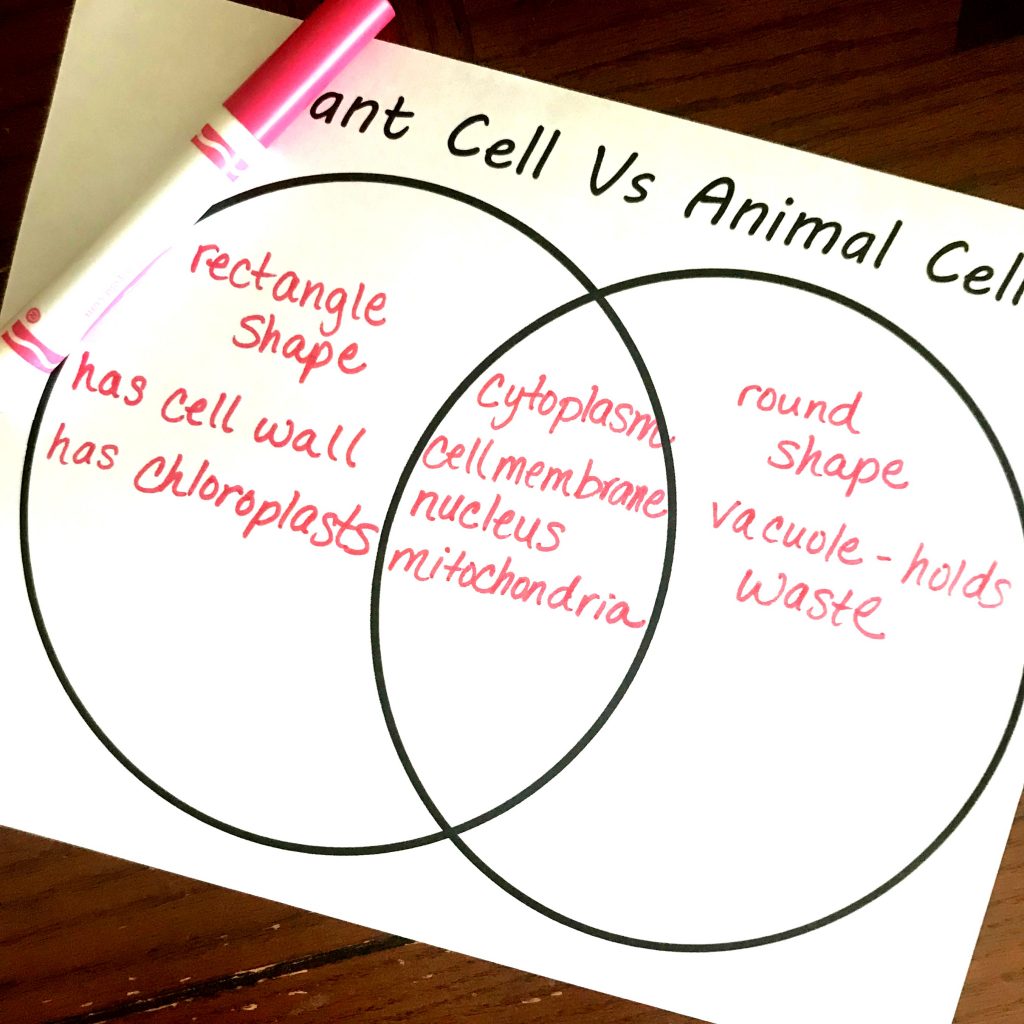 ant Cell Vs Animal Cell
rectangle
shape
has cell wall
has chloroplasts
cytoplasm
cell membrane
nucleus
mitochondria
round
shape
vacuole - holds
waste